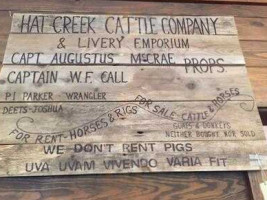 HAT CREEK CATTLE COMPANY
& LIVERY EMPORIUM
CAPT. AUGUSTUS McCRAE
CAPTAIN W.F. CALL
PROPS.
P.I. PARKER WRANGLER
DEETS-JOSHUA
FOR RENT-HORSES & RIGS
FOR SALE-CATTLE & HORSES
GOATS & DONKEYS
NEITHER BOUGHT NOR SOLD
WE DON'T RENT PIGS
UVA UVAM VIVENDO VARIA FIT